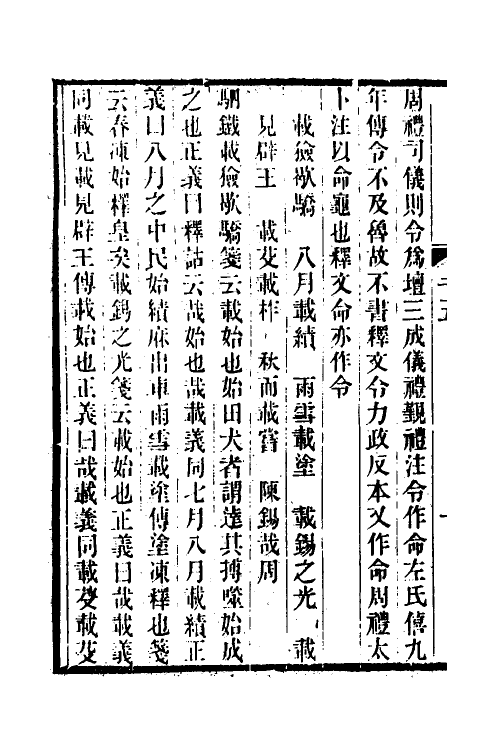 周禮司儀則令爲壇三成儀禮覲禮注令作命左氏僖九
年傳令不及魯故不書釋文令力政反本又作命周禮太
卜注以命龜也釋文命亦作令
載獫歇驕　八月載績　雨雪載塗　載錫之光　載
見辟王　載芟載柞　秋而載嘗　陳錫哉周
駟鐵載獫歇驕箋云載始也始田犬者謂達其搏噬始成
之也正義曰釋詁云哉始也哉載義同七月八月載績正
義曰八月之中民始績麻出車雨雪載塗傳塗凍釋也箋
云春凍始釋皇矣載錫之光箋云載始也正義曰哉載義
同載見載見辟王傳載始也正義曰哉載義同載芟載芟